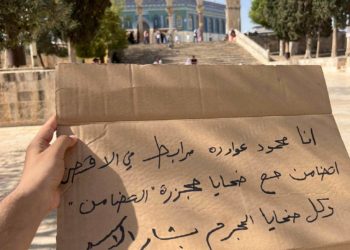 انا محمود عواوده مرابط في الاقصى
اتضامن مع ضحايا مجزرة "التضامن"
وكل ضحايا المجرم بشار الأسد